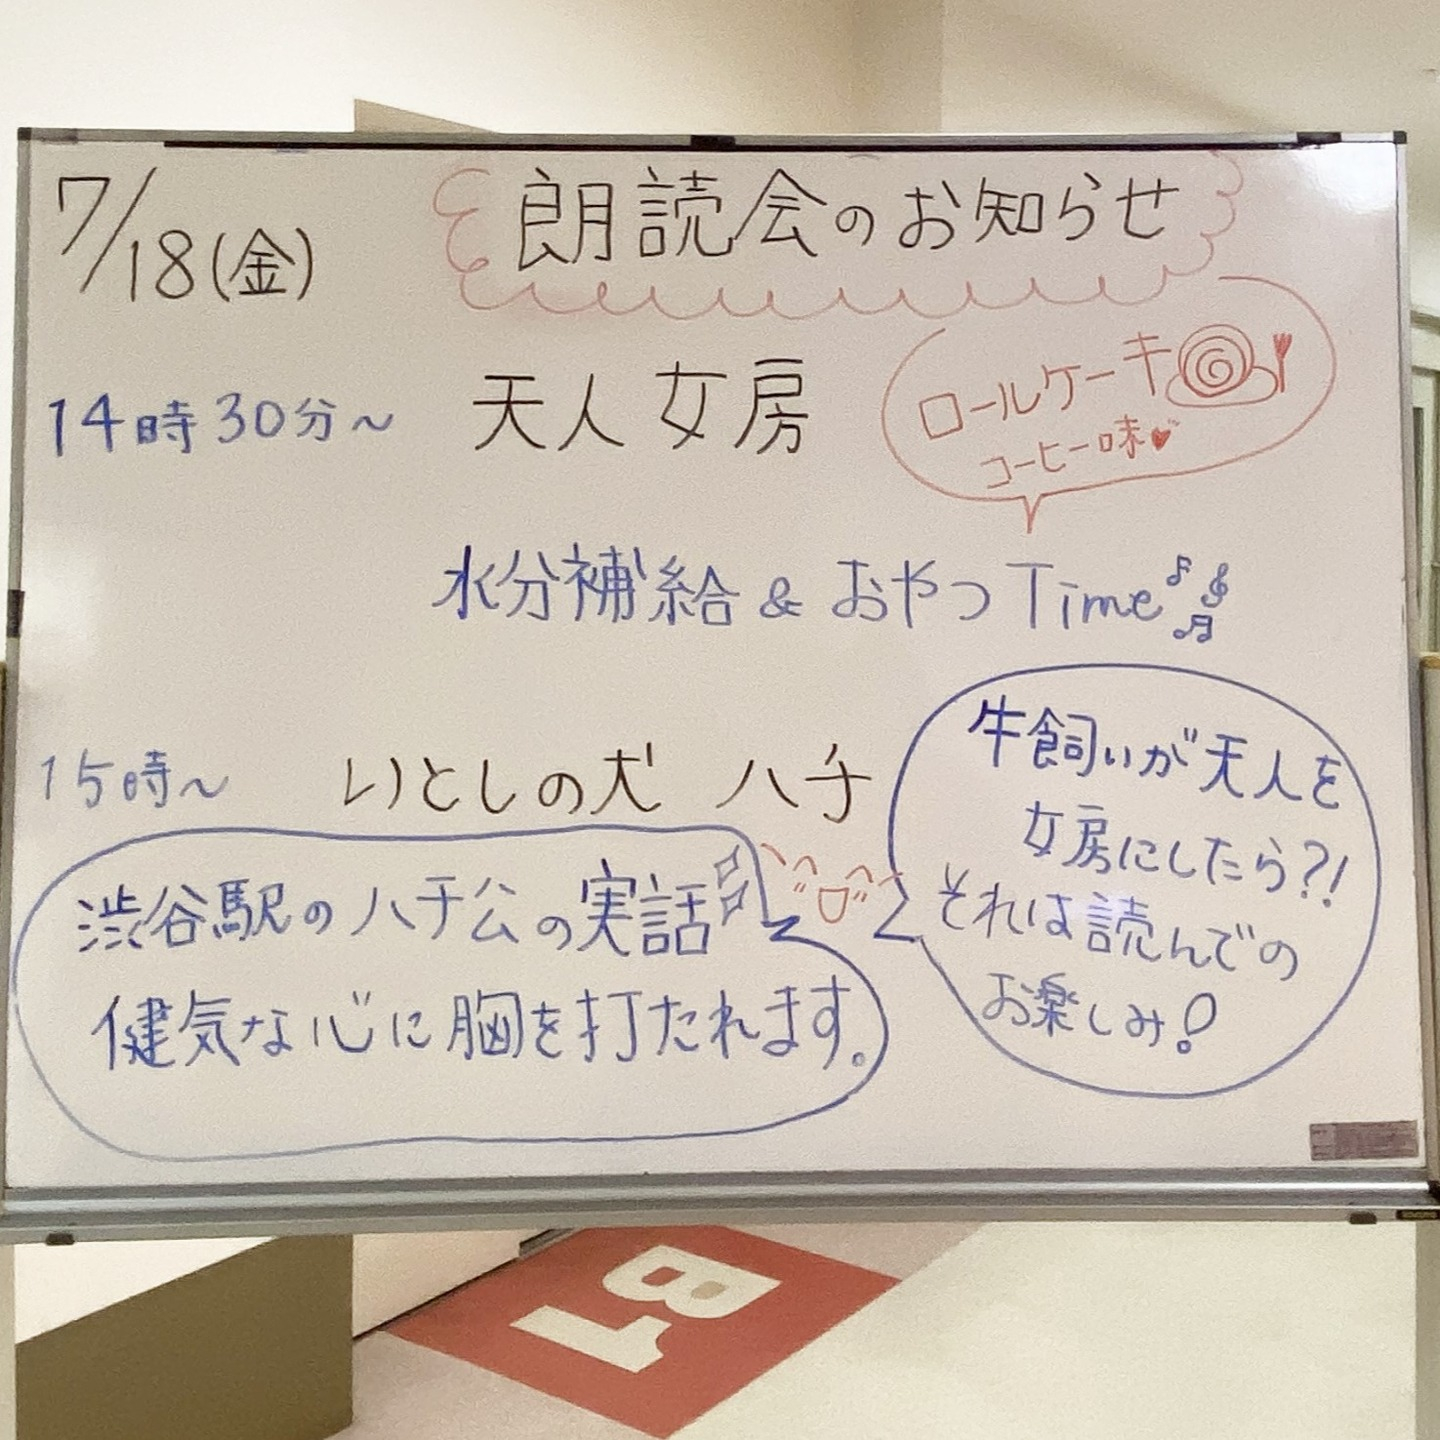 7/18(金)
朗読会のお知らせ
14時30分〜 天人女房
ロールケーキ
コーヒー味
水分補給 & おやつTime
15時〜 いとしの犬 ハチ
牛飼いが天人を
女房にしたら?!
それは読んでの
お楽しみ!
渋谷駅のハチ公の実話
健気な心に胸を打たれます。
B1